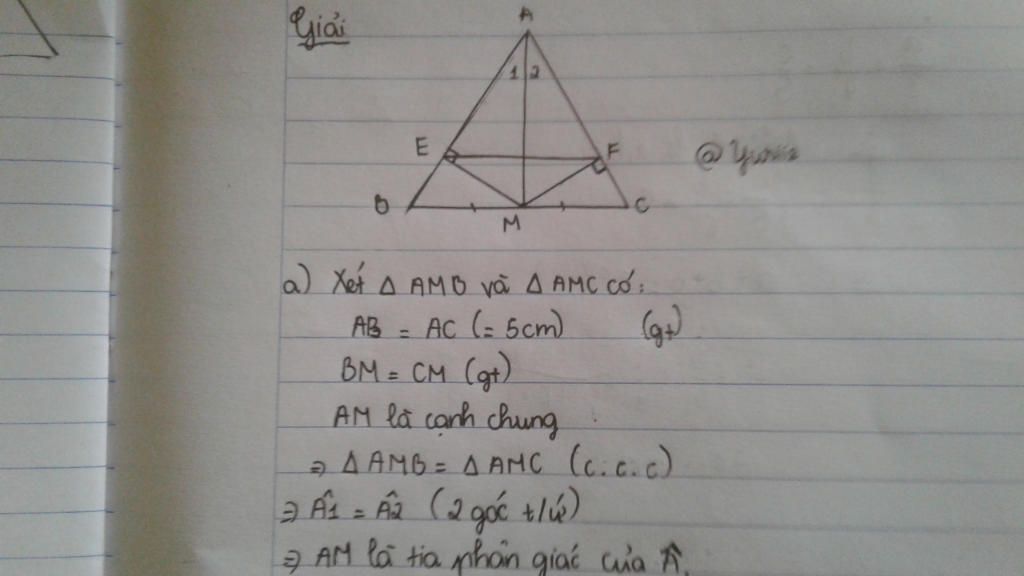 Giải
A
1 2
E F
B C
M
a) Xét Δ AMB và Δ AMC có:
AB = AC (= 5cm) (gt)
BM = CM (gt)
AM là cạnh chung
⇒ Δ AMB = Δ AMC (c.c.c)
⇒ Â1 = Â2 (2 góc t/ứ)
⇒ AM là tia phân giác của Â.